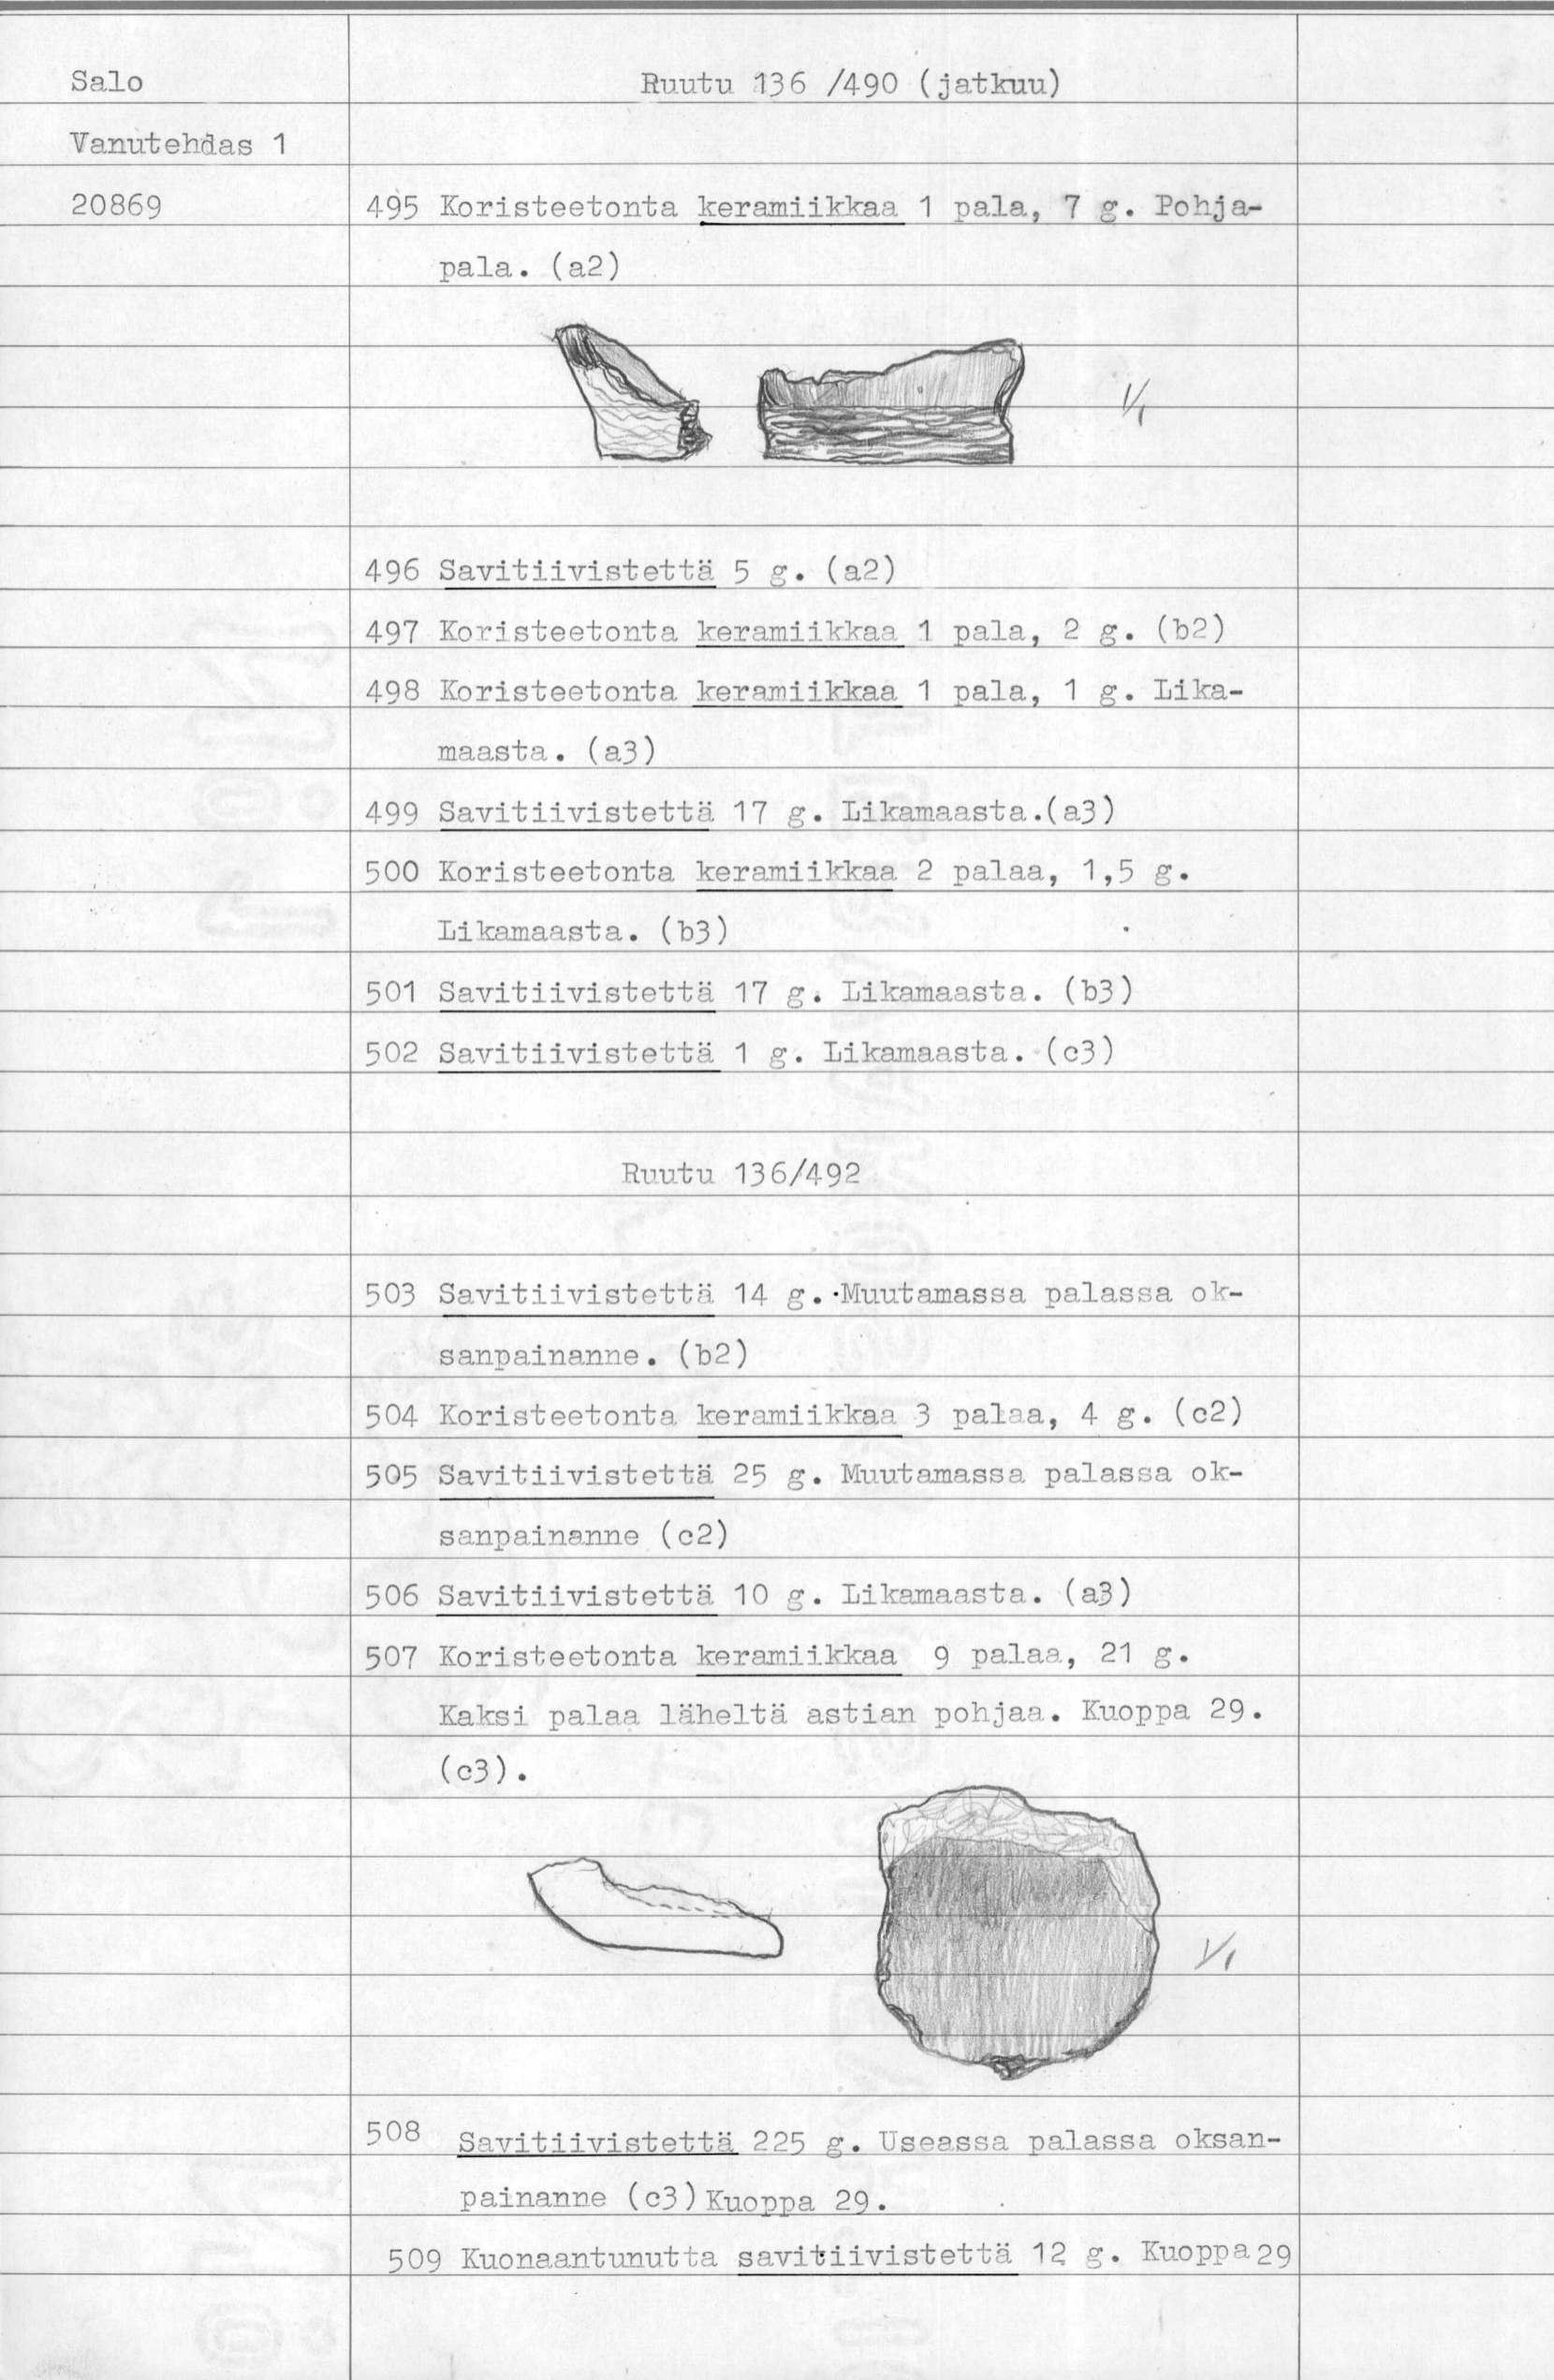 Salo
Ruutu 136 /490 (jatkuu)
Vanutehdas 1
20869
495 Koristeetonta keramiikkaa 1 pala, 7 g. Pohja-
pala. (a2)
1/1
496 Savitiivistettä 5 g. (a2)
497 Koristeetonta keramiikkaa 1 pala, 2 g. (b2)
498 Koristeetonta keramiikkaa 1 pala, 1 g. Lika-
maasta. (a3)
499 Savitiivistettä 17 g. Likamaasta.(a3)
500 Koristeetonta keramiikkaa 2 palaa, 1,5 g.
Likamaasta. (b3)
501 Savitiivistettä 17 g. Likamaasta. (b3)
502 Savitiivistettä 1 g. Likamaasta. (c3)
Ruutu 136/492
503 Savitiivistettä 14 g. Muutamassa palassa ok-
sanpainanne. (b2)
504 Koristeetonta keramiikkaa 3 palaa, 4 g. (c2)
505 Savitiivistettä 25 g. Muutamassa palassa ok-
sanpainanne (c2)
506 Savitiivistettä 10 g. Likamaasta. (a3)
507 Koristeetonta keramiikkaa 9 palaa, 21 g.
Kaksi palaa läheltä astian pohjaa. Kuoppa 29.
(c3).
1/1
508 Savitiivistettä 225 g. Useassa palassa oksan-
painanne (c3) Kuoppa 29.
509 Kuonaantunutta savitiivistettä 12 g. Kuoppa 29